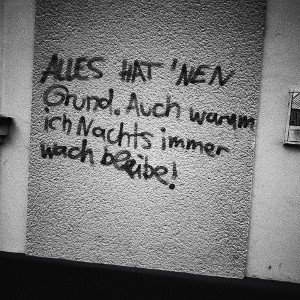 ALLES HAT 'NEN
Grund. Auch warum
ich Nachts immer
wach bleibe!